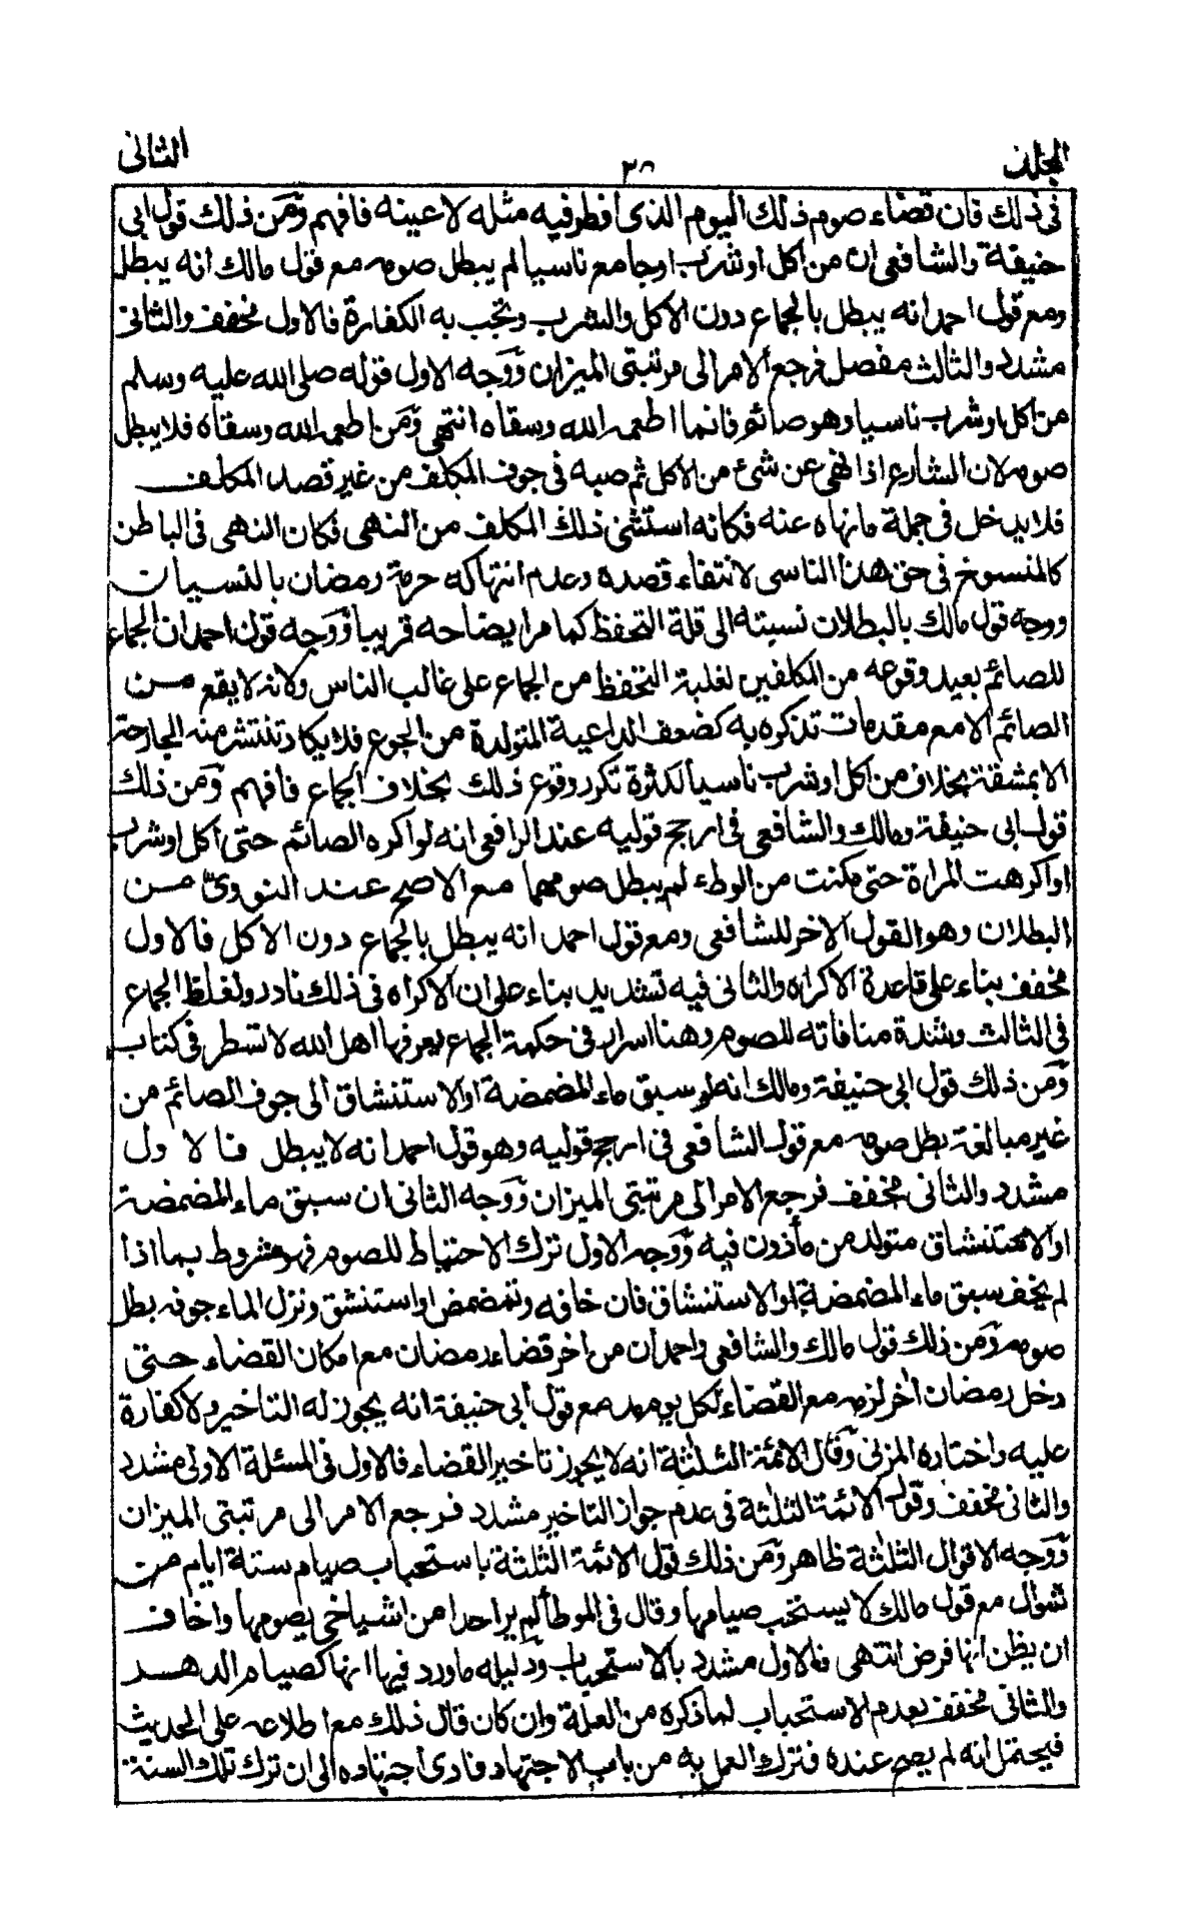 المجلد
٣٨
الثانى
فى ذلك فان قضاء صوم ذلك اليوم الذى افطر فيه مثله لا عينه فافهم ومن ذلك قول ابى
حنيفة والشافعى ان من اكل او شرب او جامع ناسيا لم يبطل صومه مع قول مالك انه يبطل
ومع قول احمد انه يبطل بالجماع دون الاكل والشرب وتجب به الكفارة فالاول مخفف والثانى
مشدد والثالث مفصل فرجع الامر الى مرتبتى الميزان ووجه الاول قوله صلى الله عليه وسلم
من اكل او شرب ناسيا وهو صائم فانما اطعمه الله وسقاه انتهى ومن اطعمه الله وسقاه فلا يبطل
صومه لان الشارع اذا نهى عن شئ من الاكل ثم صبه فى جوف المكلف من غير قصد المكلف
فلا يدخل فى جملة ما نهاه عنه فكانه استثنى ذلك المكلف من النهى فكان النهى فى الباطن
كالمنسوخ فى حق هذا الناسى لانتفاء قصده وعدم انتهاكه حرمة رمضان بالنسيان
ووجه قول مالك بالبطلان نسبته الى قلة التحفظ كما مر ايضاحه قريبا ووجه قول احمد ان الجماع
للصائم بعيد وقوعه من المكلفين لغلبة التحفظ من الجماع على غالب الناس ولانه لا يقع من
الصائم الا مع مقدمات تذكره به كضعف الداعية المتولدة من الجوع فلا يكاد تنتشر منه الجارحة
الا بمشقة بخلاف من اكل او شرب ناسيا لكثرة تكرر وقوع ذلك بخلاف الجماع فافهم ومن ذلك
قول ابى حنيفة ومالك والشافعى فى ارجح قوليه عند الرافعى انه لو اكره الصائم حتى اكل او شرب
او اكرهت المراة حتى مكنت من الوطء لم يبطل صومهما مع الاصح عند النووى من
البطلان وهو القول الاخر للشافعى ومع قول احمد انه يبطل بالجماع دون الاكل فالاول
مخفف بناء على قاعدة الاكراه والثانى فيه تشديد بناء على ان الاكراه فى ذلك نادر ولغلظ الجماع
فى الثالث وشدة منافاته للصوم وهنا اسرار فى حكمة الجماع يعرفها اهل الله لا تسطر فى كتاب
ومن ذلك قول ابى حنيفة ومالك انه لو سبق ماء المضمضة او الاستنشاق الى جوف الصائم من
غير مبالغة بطل صومه مع قول الشافعى فى ارجح قوليه وهو قول احمد انه لا يبطل فالاول
مشدد والثانى مخفف فرجع الامر الى مرتبتى الميزان ووجه الثانى ان سبق ماء المضمضة
او الاستنشاق متولد من مأذون فيه ووجه الاول ترك الاحتياط للصوم فهو مشروط بما اذا
لم يخف سبق ماء المضمضة او الاستنشاق فان خافه وتمضمض او استنشق ونزل الماء جوفه بطل
صومه ومن ذلك قول مالك والشافعى واحمد ان من اخر قضاء رمضان مع امكان القضاء حتى
دخل رمضان اخر لزمه مع القضاء لكل يوم مد مع قول ابى حنيفة انه يجوز له التاخير ولا كفارة
عليه واختاره المزنى وقال الائمة الثلثة انه لا يجوز تاخير القضاء فالاول فى المسئلة الاولى مشدد
والثانى مخفف وقول الائمة الثلثة فى عدم جواز التاخير مشدد فرجع الامر الى مرتبتى الميزان
ووجه الاقوال الثلثة ظاهر ومن ذلك قول الائمة الثلثة باستحباب صيام ستة ايام من
شوال مع قول مالك لا يستحب صيامها وقال فى الموطأ لم ير احدا من اشياخى يصومها واخاف
ان يظن انها فرض انتهى فالاول مشدد بالاستحباب ودليله ما ورد فيها انها كصيام الدهر
والثانى مخفف بعدم الاستحباب لما ذكره من العلة وان كان قال ذلك مع اطلاعه على الحديث
فيحتمل انه لم يصح عنده فترك العمل به من باب الاجتهاد فادى اجتهاده الى ان ترك تلك السنة